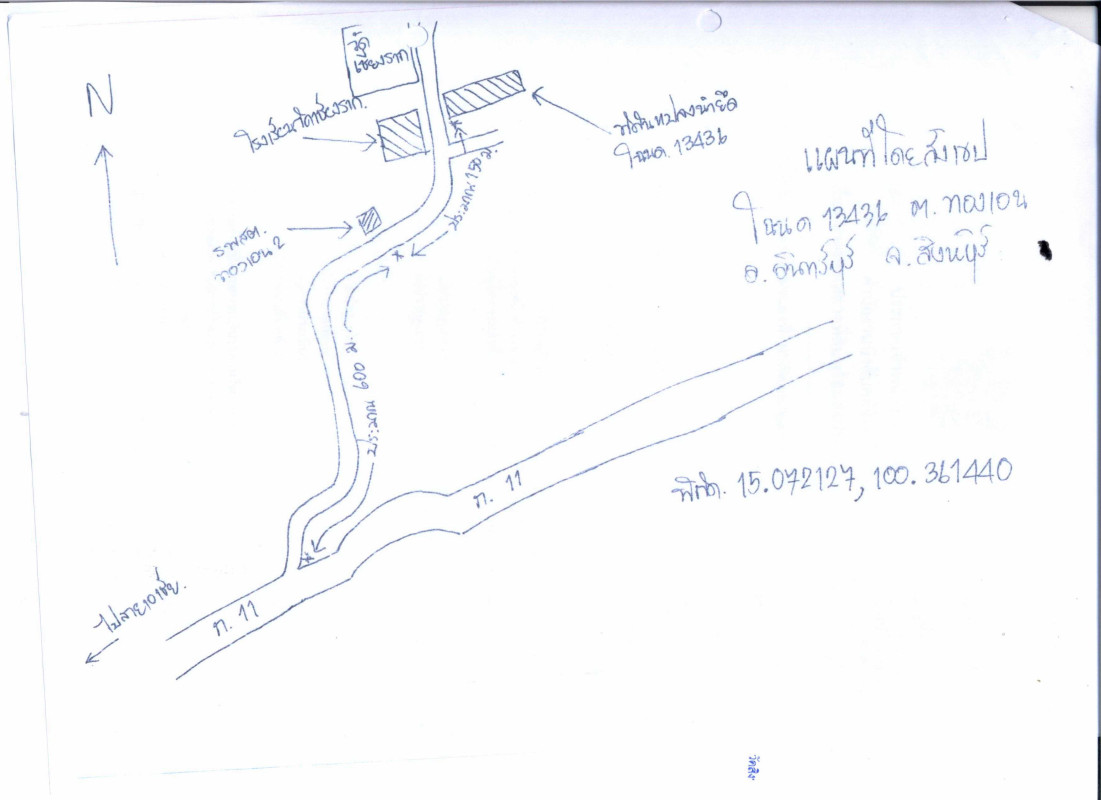 N
วัด
เชียงราก
โรงเรียนวัดเชียงราก.
ที่ดินแปลงนำยึด
โฉนด. 13436
แผนที่โดยสังเขป
โฉนด 13436 ต. ทองเอน
อ. อินทร์บุรี จ. สิงห์บุรี
ประมาณ 150 ม.
รพสต.
ทองเอน 2
ประมาณ 600 ม.
ท. 11
พิกัด. 15.072127, 100.361440
ไปสายเอเชีย.
ท. 11